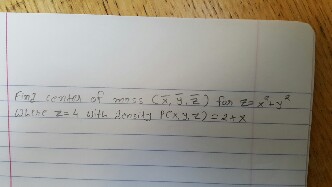 Find center of mass (x̄, ȳ, z̄) for z=x²+y²
Where z=4 with density P(x,y,z)=2+x